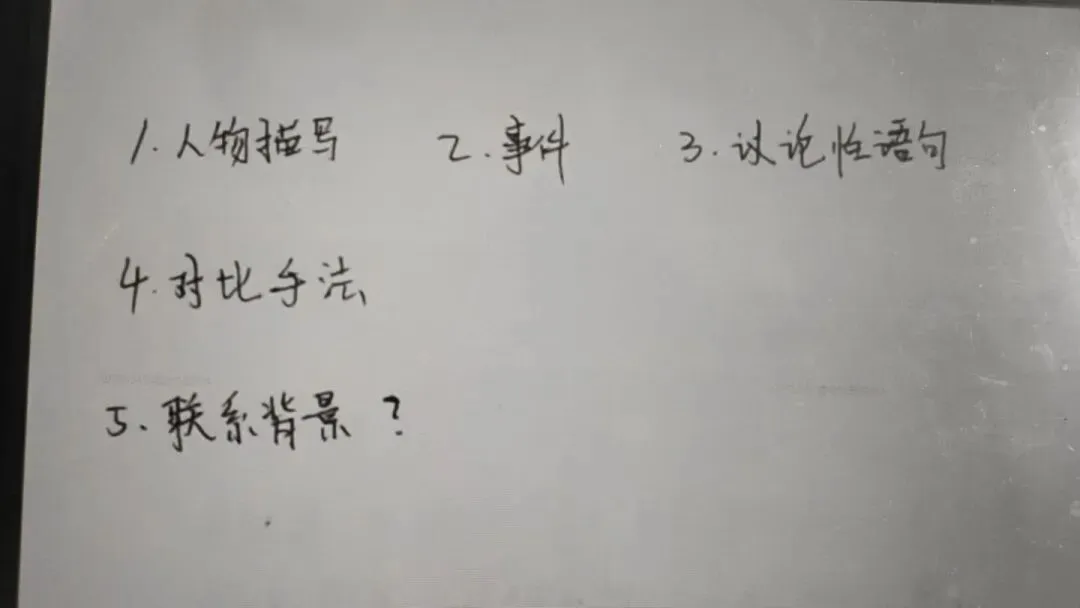 1.人物描写 2.事件 3.议论性语句
4.对比手法
5.联系背景?